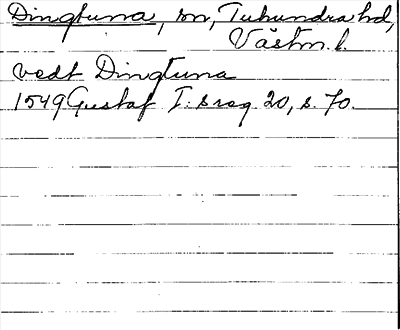 Dingtuna, sn, Tuhundra hd,
Västm. l.
vedt Dingtuna
1549 Gustaf I: s reg. 20, s. 70.